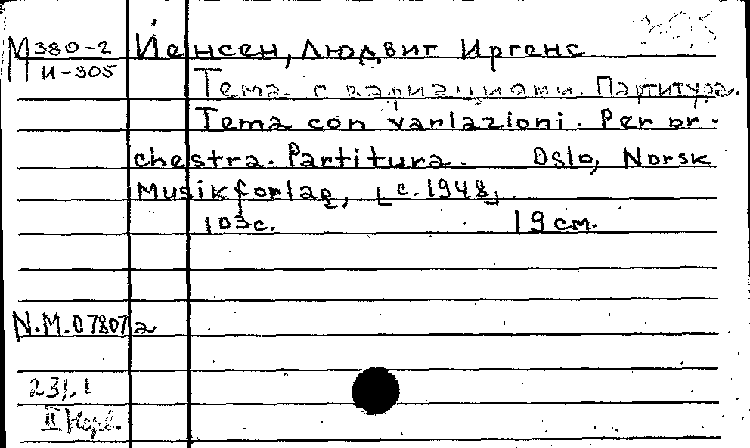 М 380-2
И-305
Йенсен, Людвиг Иргенс
Тема с вариациями. Партитура.
Tema con variazioni. Per or-
chestra. Partitura. Oslo, Norsk
Musikforlag, [c. 1948]
103 с. 19 см.
N.M.07807a
231.1
II Норв.